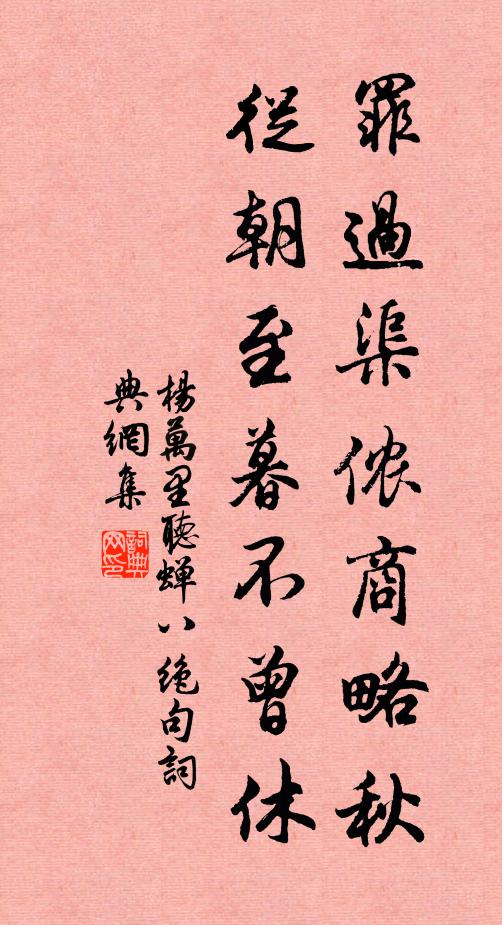 罪過渠侬商略秋
從朝至暮不曾休
楊萬里聽蟬八絶句詞
典網集
詞典
网印